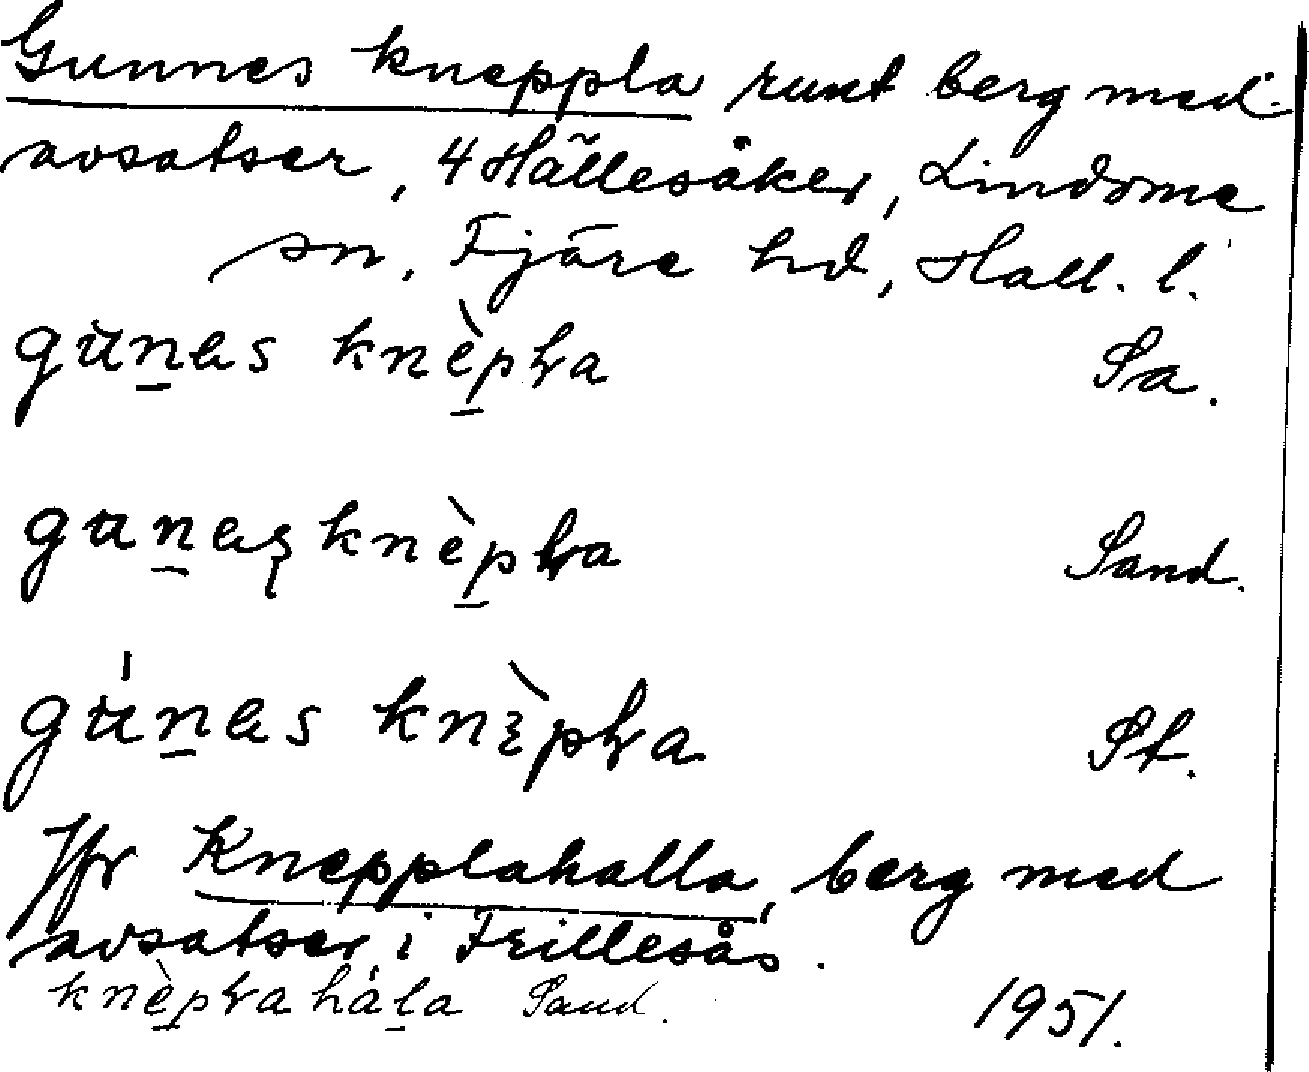 Gunnes kneppla runt berg med
avsatser, 4 Hällesåker, Lindome
sn, Fjäre hd, Hall. l.
gun̲əs knèp̲ɬa Sa.
gun̲əʂ knèp̲ɬa Sand.
gún̲əs knɛ̀pɬa St.
Jfr Knepplahalla, berg med
avsatser i Frillesås.
knèp̲ɬahál̲a Sand. 1951.